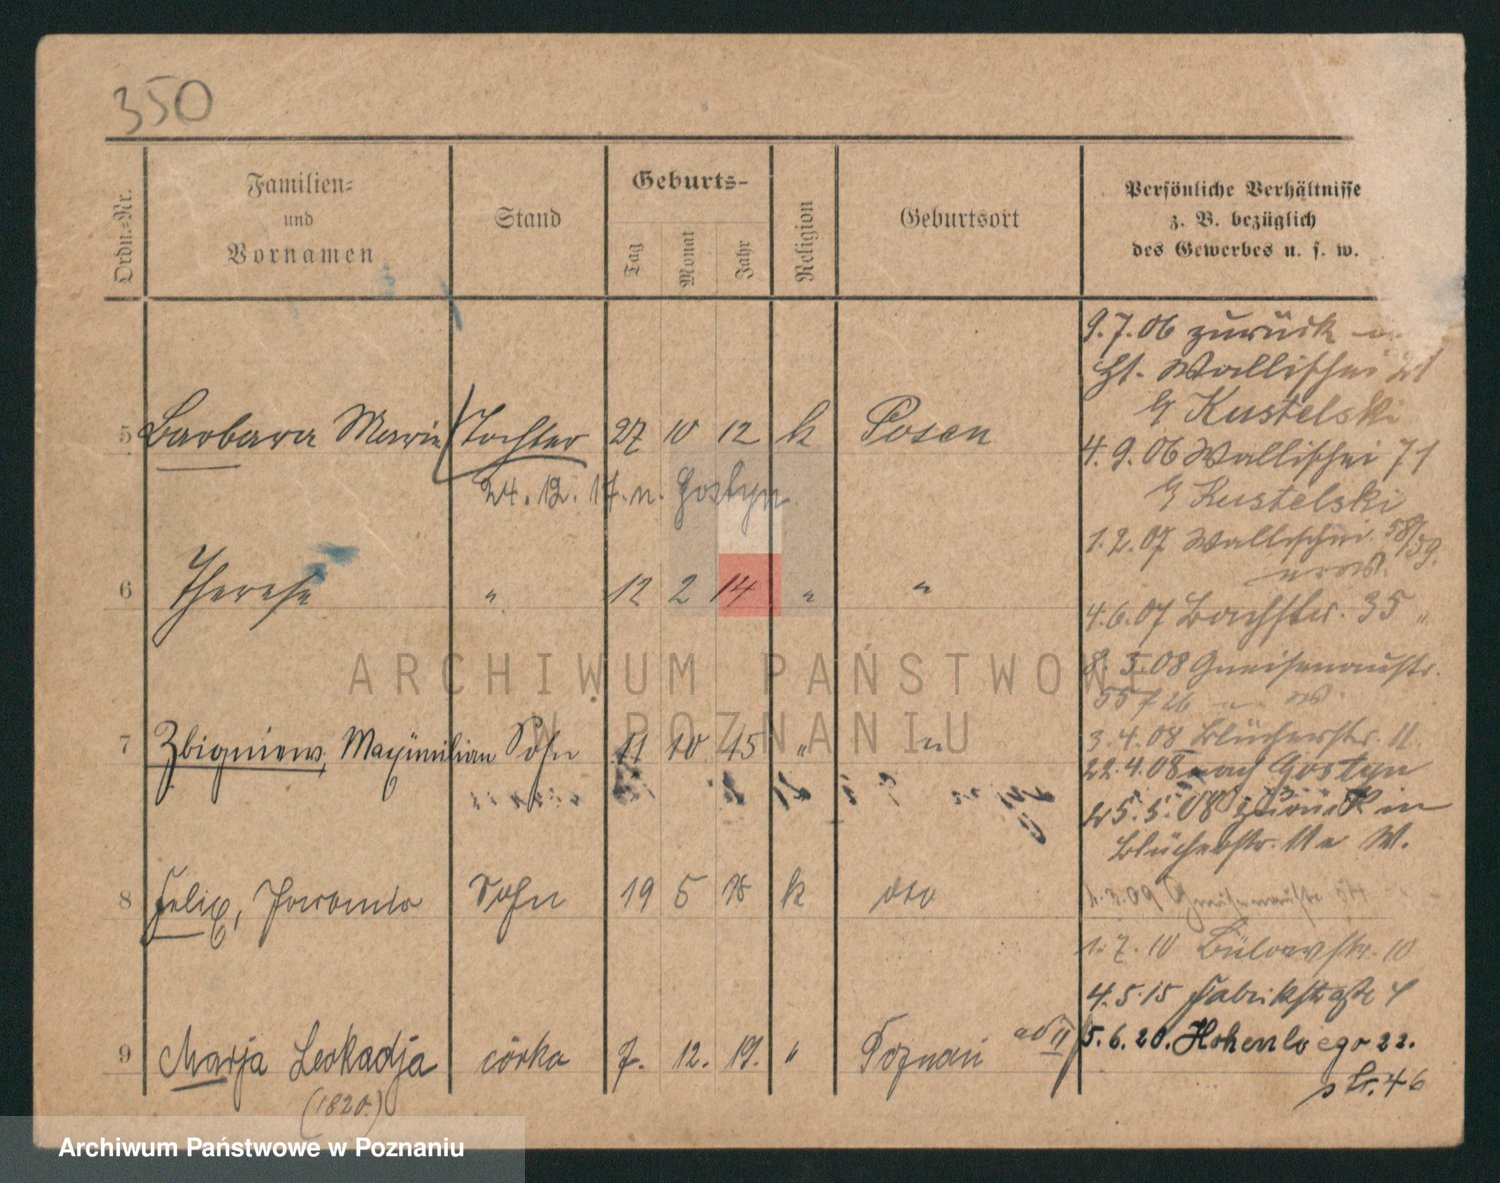 350
Ordn.-Nr.
Familien-
und
Vornamen
Stand
Geburts-
Tag
Monat
Jahr
Religion
Geburtsort
Persönliche Verhältnisse
z. B. bezüglich
des Gewerbes u. s. w.
9.7.06 zurück
Wallischei 21
Kustelski
5 Barbara Marie Tochter 27 10 12 k Posen
4.9.06 Wallischei 71
24.12.17. n. Gostyn.
Kustelski
1.2.07 Wallischei 58/59.
6 Therese " 12 2 14 " "
4.6.07 Bachstr. 35 "
8.3.08 Gneisenaustr.
7 Zbigniew, Maximilian Sohn 11 10 15 " "
3.4.08 Blücherstr. 11.
22.4.08 nach Gostyn
25.5.08 zurück in
Blücherstr. 11a W.
8 Felix, Sohn 19 5 18 k dto
1.3.09 Gneisenaustr.
1.7.10 Bülowstr. 10
4.5.15 Fabrikstraße
9 Marja Leokadja córka 7. 12. 19. " Poznań ad II
5.6.20. Hohenloego 22.
(1820.)
str. 46
ARCHIWUM PAŃSTWOWE
W POZNANIU
Archiwum Państwowe w Poznaniu